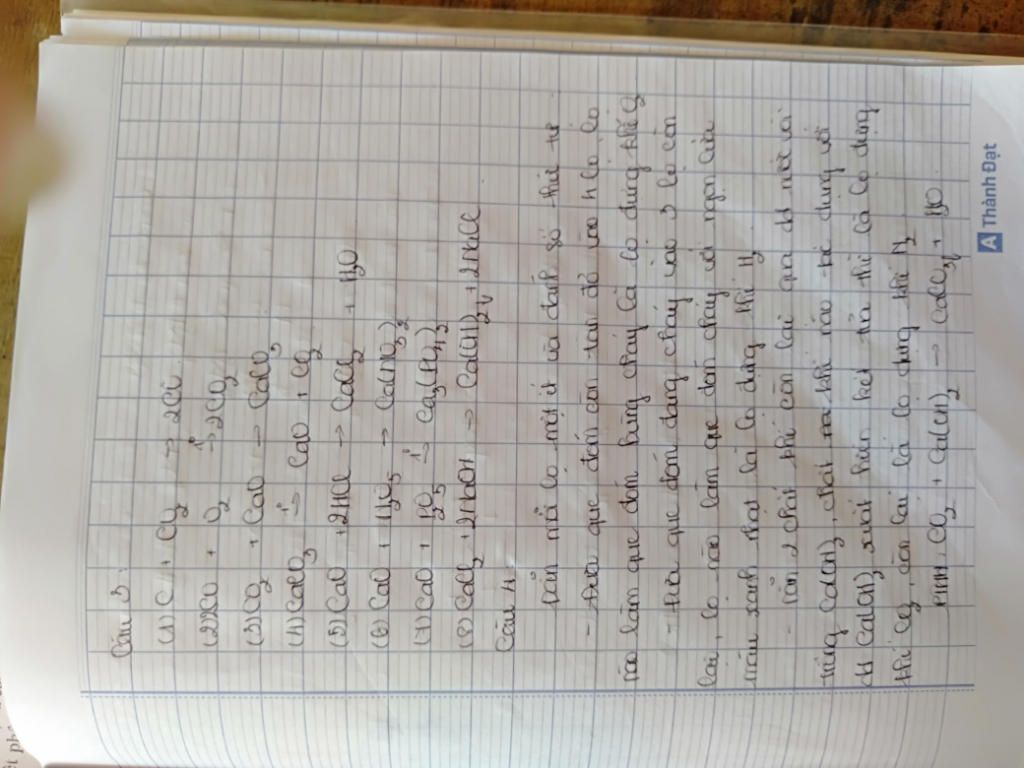 Câu 3:
(1) C + CO2 → 2CO
(2) 2CO + O2 t°→ 2CO2
(3) CO2 + CaO → CaCO3
(4) CaCO3 t°→ CaO + CO2
(5) CaO + 2HCl → CaCl2 + H2O
(6) CaO + N2O5 → Ca(NO3)2
(7) CaO + P2O5 t°→ Ca3(PO4)2
(8) CaCl2 + 2NaOH → Ca(OH)2↓ + 2NaCl
Câu 4:
Dẫn mỗi lọ một ít và đánh số thứ tự
- Đưa que đóm còn tàn đỏ vào 4 lọ lọ
nào làm que đóm bùng cháy là lọ đựng khí O2
- Đưa que đóm đang cháy vào 3 lọ còn
lại, lọ nào làm que đóm cháy với ngọn lửa
màu xanh nhạt là lọ đựng khí H2
- Dẫn 2 chất khí còn lại qua dd nước vôi
trong Ca(OH)2, chất khí nào tác dụng với
dd Ca(OH)2 xuất hiện kết tủa thì là lọ đựng
khí CO2, còn lại là lọ đựng khí N2
PTHH: CO2 + Ca(OH)2 → CaCO3↓ + H2O
A Thành Đạt